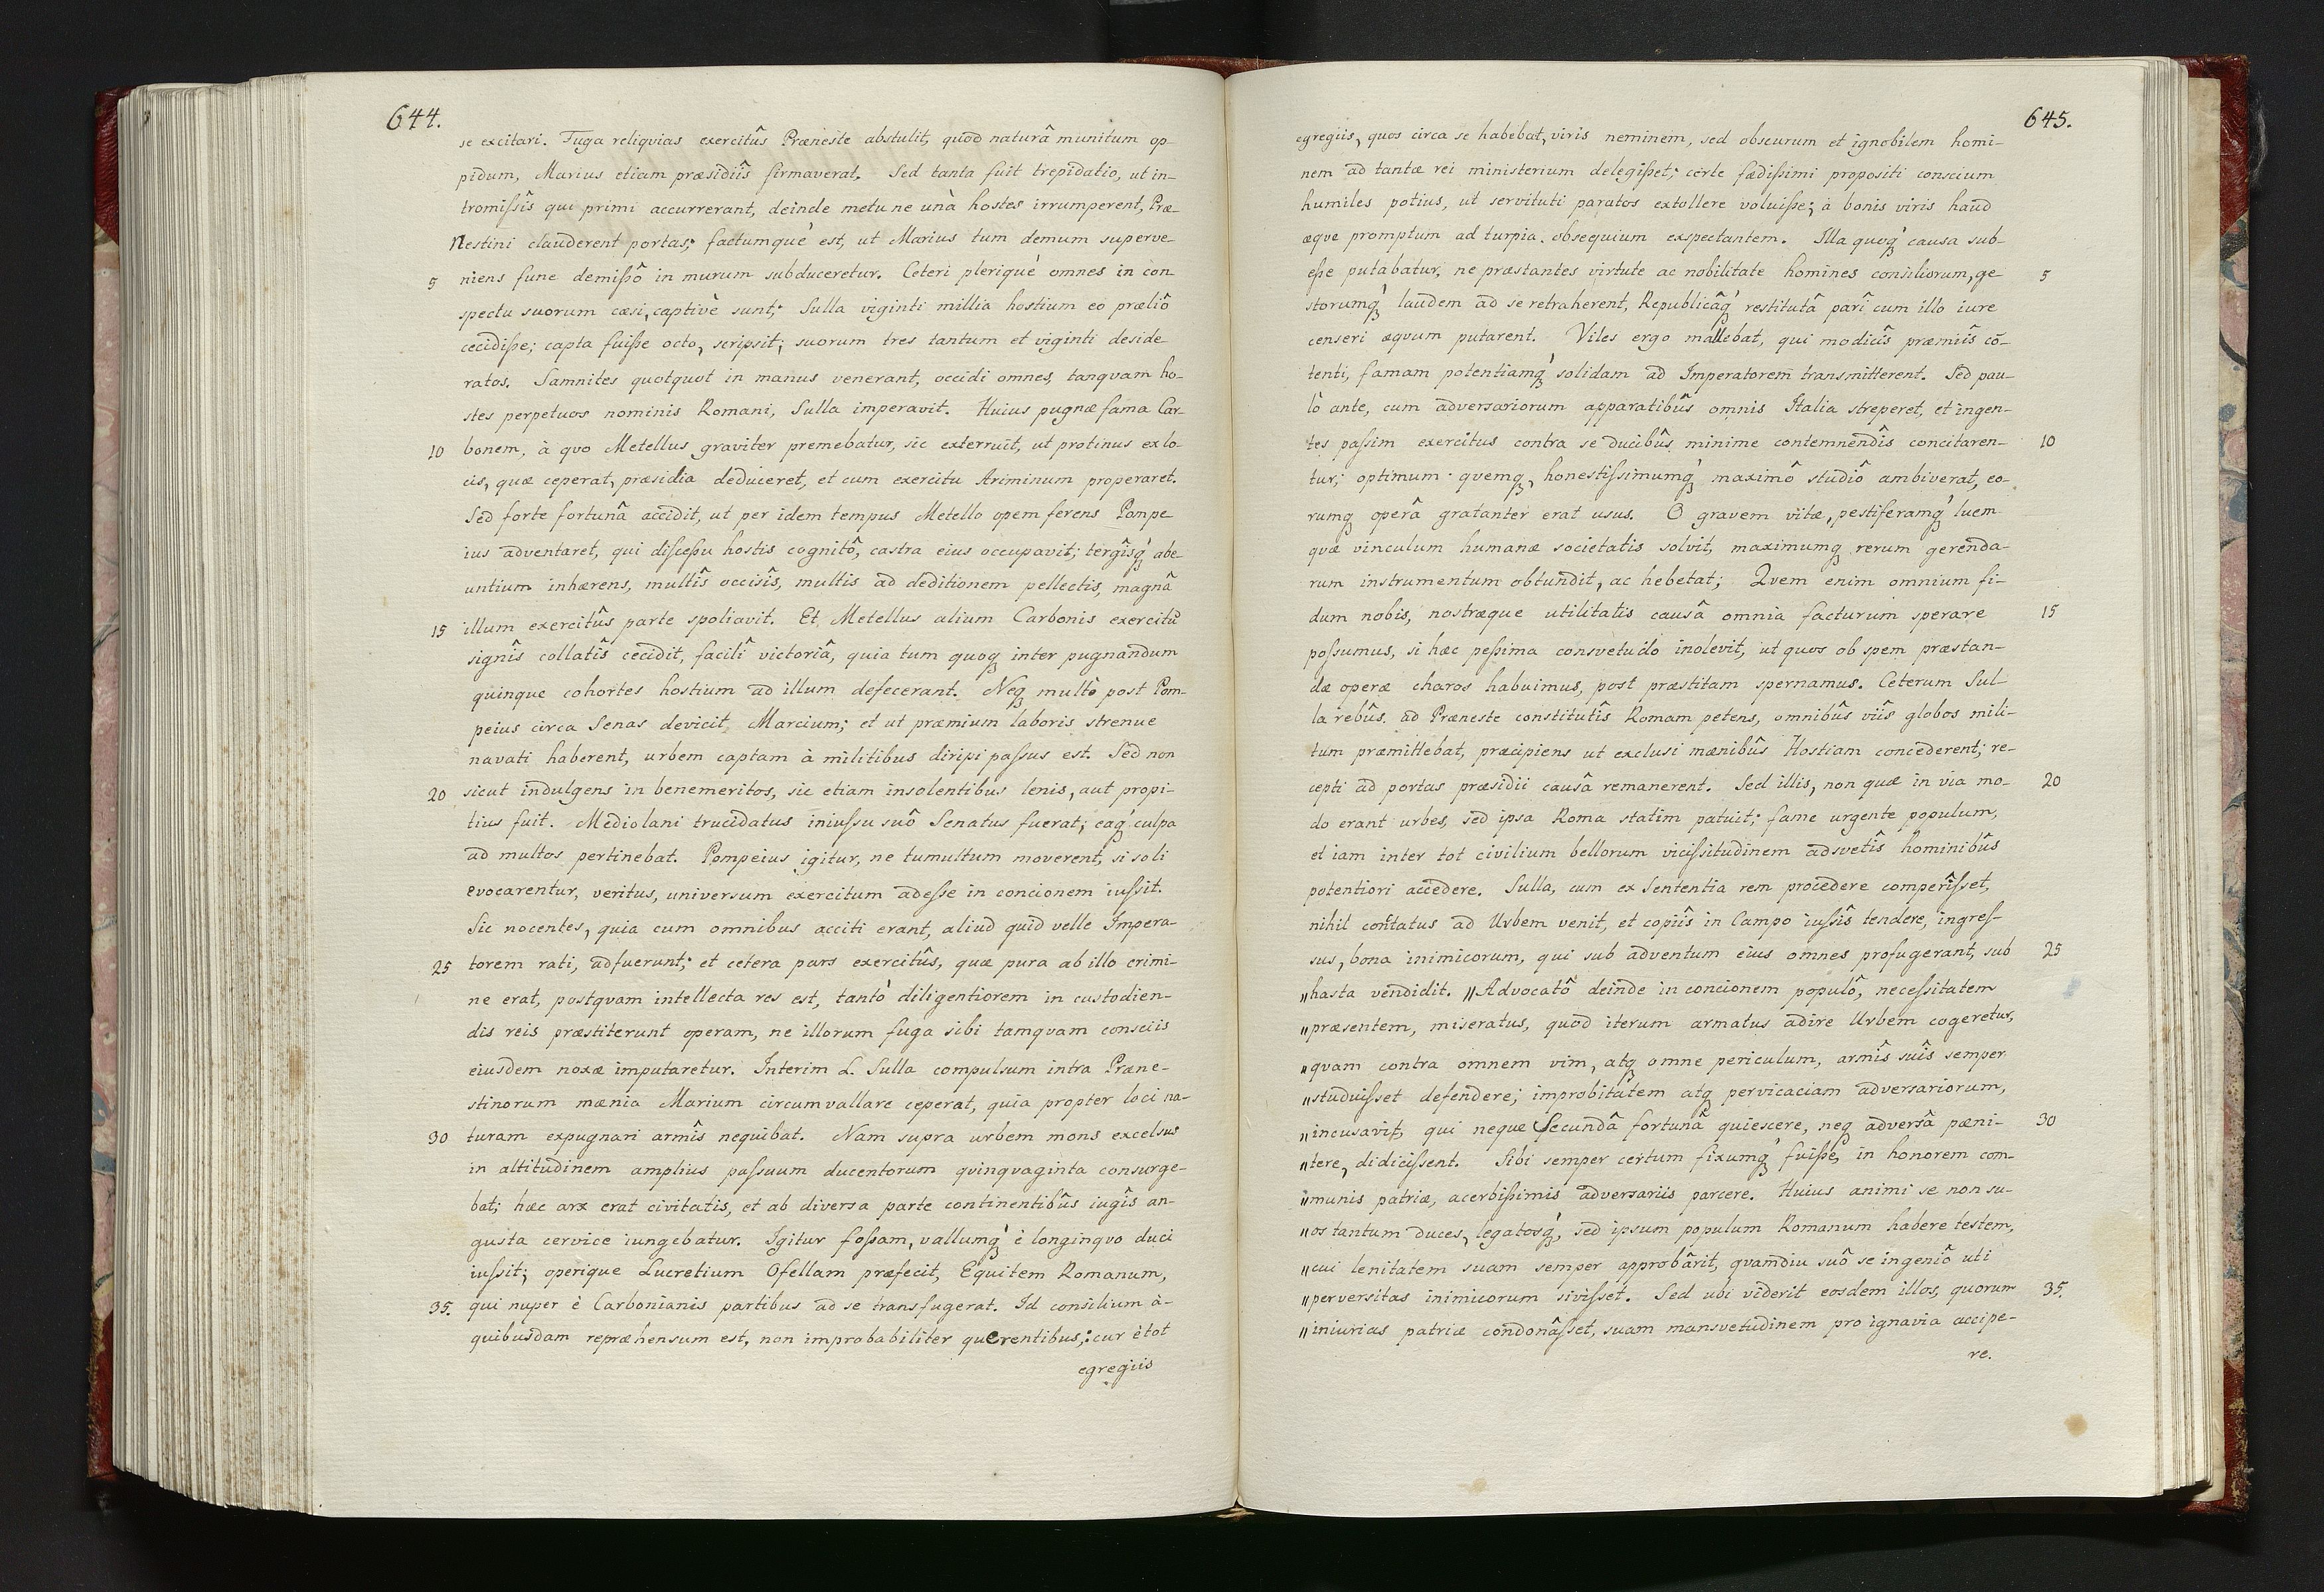 644.
se excitari. Fuga reliqvias exercitûs Præneste abstulit, quod naturâ munitum op-
pidum, Marius etiam præsidiîs firmaverat. Sed tanta fuit trepidatio, ut in-
tromiſsîs qui primi accurrerant, deinde metu ne unà hostes irrumperent, Præ-
nestini clauderent portas; factumquè est, ut Marius tum demum superve-
5 niens fune demiſsô in murum subduceretur. Ceteri plerique omnes in con-
spectu suorum cæsi, captivè sunt; Sulla viginti millia hostium eo præliô
cecidiſse; capta fuiſse octo, scripsit; suorum tres tantum et viginti deside-
ratos. Samnites quotquot in manus venerant, occidi omnes, tanqvam ho-
stes perpetuos nominis Romani, Sulla imperavit. Huius pugnæ fama Car-
10 bonem, à qvo Metellus graviter premebatur, sic exterruit, ut protinus ex lo-
cis, quæ ceperat, præsidia deduceret, et cum exercitu Ariminum properaret.
Sed forte fortunâ accidit, ut per idem tempus Metello opem ferens Pompe
ius adventaret, qui diſceſsu hostis cognitô, castra eius occupavit; tergîsq́ abe-
untium inhærens, multîs occisîs, multis ad deditionem pellectis, magnâ
15 illum exercitûs parte spoliavit. Et Metellus alium Carbonis exercitũ
signîs collatîs cecidit, facilî victoriâ, quia tum quoq inter pugnandum
quinque cohortes hostium ad illum defecerant. Neq multò post Pom-
peius circa Senas devicit Marcium; et ut præmium laboris strenue
navati haberent, urbem captam à militibus diripi paſsus est. Sed non
20 sicut indulgens in benemeritos, sic etiam insolentibus lenis, aut propi-
tius fuit. Mediolani trucidatus iniuſsu suô Senatus fuerat; eaq́ culpa
ad multos pertinebat. Pompeius igitur, ne tumultum moverent, si soli
evocarentur, veritus, universum exercitum adeſse in concionem iuſsit.
Sic nocentes, quia cum omnibus acciti erant, aliud quid velle Impera-
25 torem rati, adfuerunt; et cetera pars exercitûs, quæ pura ab illo crimi-
ne erat, postqvam intellecta res est, tantò diligentiorem in custodien-
dis reis præstiterunt operam, ne illorum fuga sibi tamqvam consciis
eiusdem noxæ imputaretur. Interim L. Sulla compulsum intra Præne-
stinorum mænia Marium circumvallare ceperat, quia propter loci na-
30 turam expugnari armîs nequibat. Nam supra urbem mons excelsus
in altitudinem amplius paſsuum ducentorum qvinqvaginta consurge-
bat; hæc arx erat civitatis, et ab diversa parte continentibûs iugîs an-
gusta cervice iungebatur. Igitur foſsam, vallumq́ è longinqvo duci
iuſsit; operique Lucretium Ofellam præfecit, Equitem Romanum,
35. qui nuper è Carbonianis partibus ad se transfugerat. Id consilium à-
quibusdam repræhensum est, non improbabiliter querentibus,: cur è tot
egregiis
645.
egregiis, quos circa se habebat, viris neminem, sed obscurum et ignobilem homi-
nem ad tantæ rei ministerium delegiſset; certe fædiſsimi propositi conscium
humiles potius, ut servituti paratos extollere voluiſse; à bonis viris haud
æqve promptum ad turpia obsequium exspectantem. Illa quoq́ causa sub-
eſse putabatur, ne præstantes virtute ac nobilitate homines consiliorum, ge- 5
storumq́ laudem ad se retraherent, Republicâq́ restitutâ parî cum illo iure
censeri æqvum putarent. Viles ergo mallebat, qui modicîs præmiîs cō-
tenti, famam potentiamq́ solidam ad Imperatorem transmitterent. Sed pau-
lô ante, cum adversariorum apparatibûs omnis Italia streperet, et ingen-
tes paſsim exercitus contra se ducibûs minime contemnendîs concitaren- 10
tur; optimum qvemq, honestiſsimumq́ maximô studiô ambiverat, eo-
rumq operâ gratanter erat usus. O gravem vitæ, pestiferamq́ luem
quæ vinculum humanæ societatis solvit, maximumq rerum gerenda-
rum instrumentum obtundit, ac hebetat; Qvem enim omnium fi-
dum nobis, nostræque utilitatis causâ omnia facturum sperare 15
poſsumus, si hæc peſsima consvetudo inolevit, ut quos ob spem præstan-
dæ operæ charos habuimus, post præstitam spernamus. Ceterum Sul-
la rebûs ad Præneste constitutîs Romam petens, omnibûs viîs globos mili-
tum præmittebat, præcipiens ut exclusi mænibûs Hostiam concederent; re-
cepti ad portas præsidii causâ remanerent. Sed illis, non quæ in via mo- 20
do erant urbes, sed ipsa Roma statim patuit; fame urgente populum,
et iam inter tot civilium bellorum viciſsitudinem adsvetîs hominibûs
potentiori accedere. Sulla, cum ex Sententia rem procedere comperîſset,
nihil contatus ad Urbem venit, et copiîs in Campo iuſsîs tendere, ingreſ-
sus, bona inimicorum, qui sub adventum eius omnes profugerant, sub 25
"hasta vendidit. "Advocatô deinde in concionem populô, neceſsitatem
"præsentem, miseratus, quod iterum armatus adire Urbem cogeretur,
"qvam contra omnem vim, atq omne periculum, armîs suîs semper
"studuiſset defendere; improbitatem atq pervicaciam adversariorum,
"incusavit, qui neque Secundâ fortunâ quiescere, neq adversâ pæni- 30
"tere, didiciſsent. Sibi semper certum fixumq́ fuiſse, in honorem com-
"munis patriæ, acerbiſsimis adversariis parcere. Huius animi se non su-
"os tantum duces, legatosq́, sed ipsum populum Romanum habere testem,
"cui lenitatem suam semper approbârit, qvamdiu suô se ingeniô uti
"perversitas inimicorum siviſset. Sed ubi viderit eosdem illos, quorum 35.
"iniurias patriæ condonâſset, suam mansvetudinem pro ignavia accipe-
re.